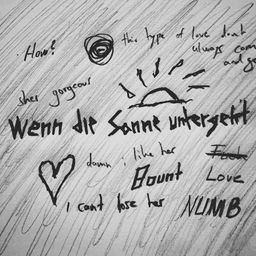 How?
this type of love don't
always come
and go
shes gorgeous
Wenn die Sonne untergeht
damn i like her
Fuck
Bount
Love
I cant lose her
NUMB